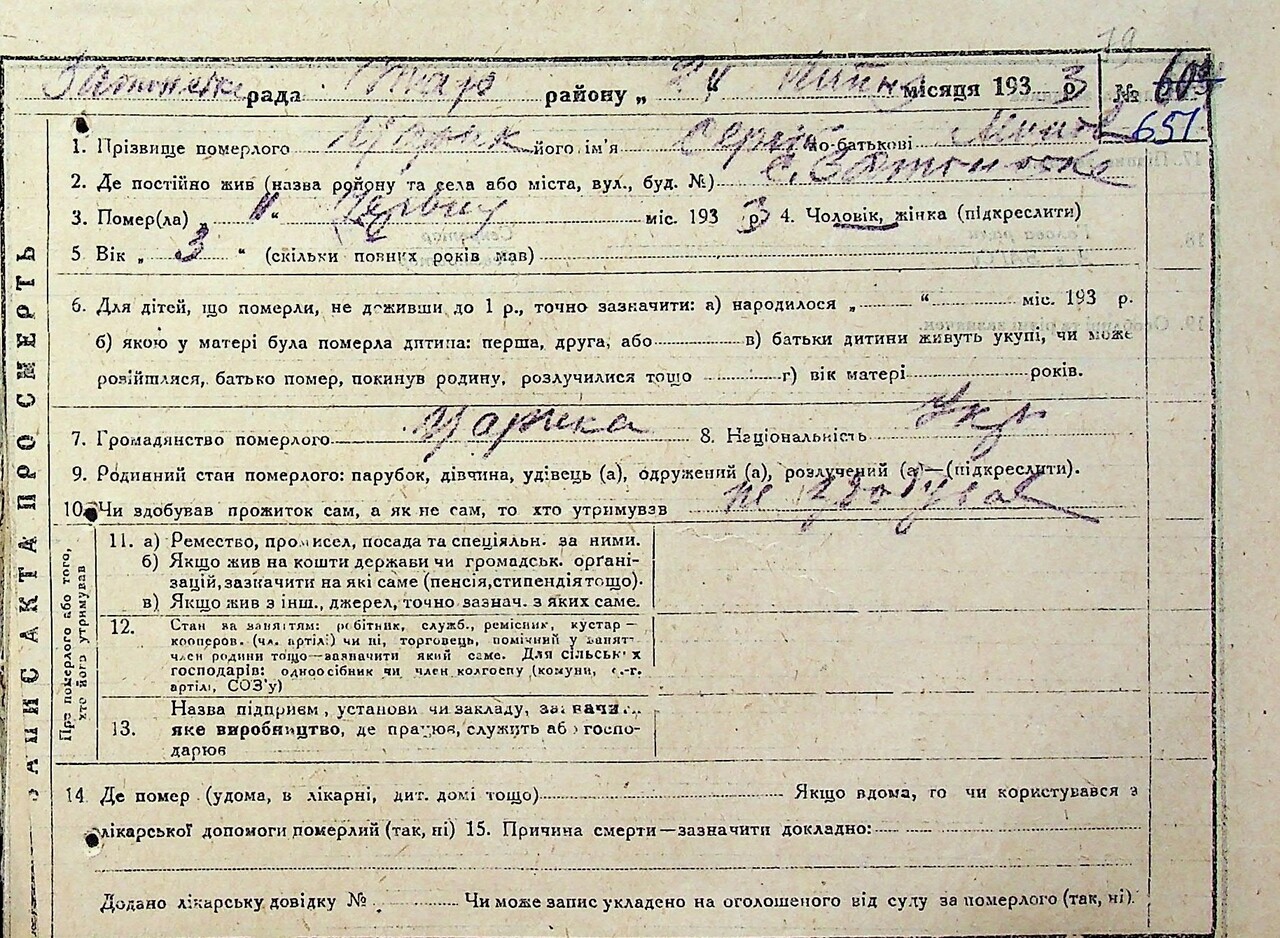 19
рада району „ 24 місяця 1933 р. № 609
651
1. Прізвище померлого його ім'я Сергій по-батькові
2. Де постійно жив (назва ройону та села або міста, вул., буд. №) с.
3. Помер(ла) „ “ Червня міс. 193 3 р. 4. Чоловік, жінка (підкреслити)
5 Вік „ 3 “ (скільки повних років мав)
6. Для дітей, що померли, не доживши до 1 р., точно зазначити: а) народилося „ “ міс. 193 р.
б) якою у матері була померла дитина: перша, друга, або в) батьки дитини живуть укупі, чи може
розійшлися, батько помер, покинув родину, розлучилися тощо г) вік матері років.
7. Громадянство померлого 8. Національність Укр
9. Родинний стан померлого: парубок, дівчина, удівець (а), одружений (а), розлучений (а)—(підкреслити).
10. Чи здобував прожиток сам, а як не сам, то хто утримував не здобував
ЗАПИС АКТА ПРО СМЕРТЬ
Про померлого або того,
хто його утримував
11. а) Ремество, промисел, посада та спеціяльн. за ними.
б) Якщо жив на кошти держави чи громадськ. орґані-
зацій, зазначити на які саме (пенсія, стипендія тощо).
в) Якщо жив з інш., джерел, точно зазнач. з яких саме.
12. Стан за заняттям: робітник, служб., ремісник, кустар—
кооперов. (чл. артілі) чи ні, торговець, помічний у занят-
член родини тощо—зазначити який саме. Для сільських
господарів: одноосібник чи член колгоспу (комуни, с.-г.
артілі, СОЗ'у)
13. Назва підприєм, установи чи закладу,
яке виробництво, де працюв, служить або госпо-
дарюв
14. Де помер (удома, в лікарні, дит. домі тощо) Якщо вдома, то чи користувався з
лікарської допомоги померлий (так, ні) 15. Причина смерти—зазначити докладно:
Додано лікарську довідку № Чи може запис укладено на оголошеного від суду за померлого (так, ні).